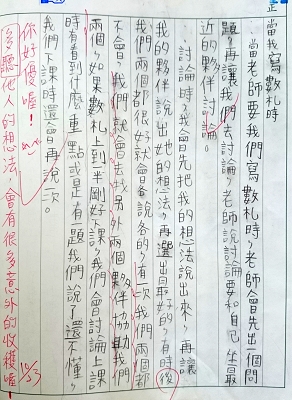 當我寫數札時
當老師要我們寫數札時，老師會先出一個問
題，再讓我們去討論，老師說討論要和自己坐最
近的夥伴討論。
討論時，我會先把我的想法說出來，再讓
我的夥伴說出她的想法，再選出最好的，有時後
我們兩個都很好就會各說各的，有一次我們兩個都
不會，我們就會去找另外兩個夥伴協助我們
兩個，如果數札上到半剛好下課，我們會討論上課
時有看到什麼重點或是有一題我們說了還不懂，
我們下課時還會再說一次。
你好優喔！
多聽他人的想法，會有很多意外的收穫喔！